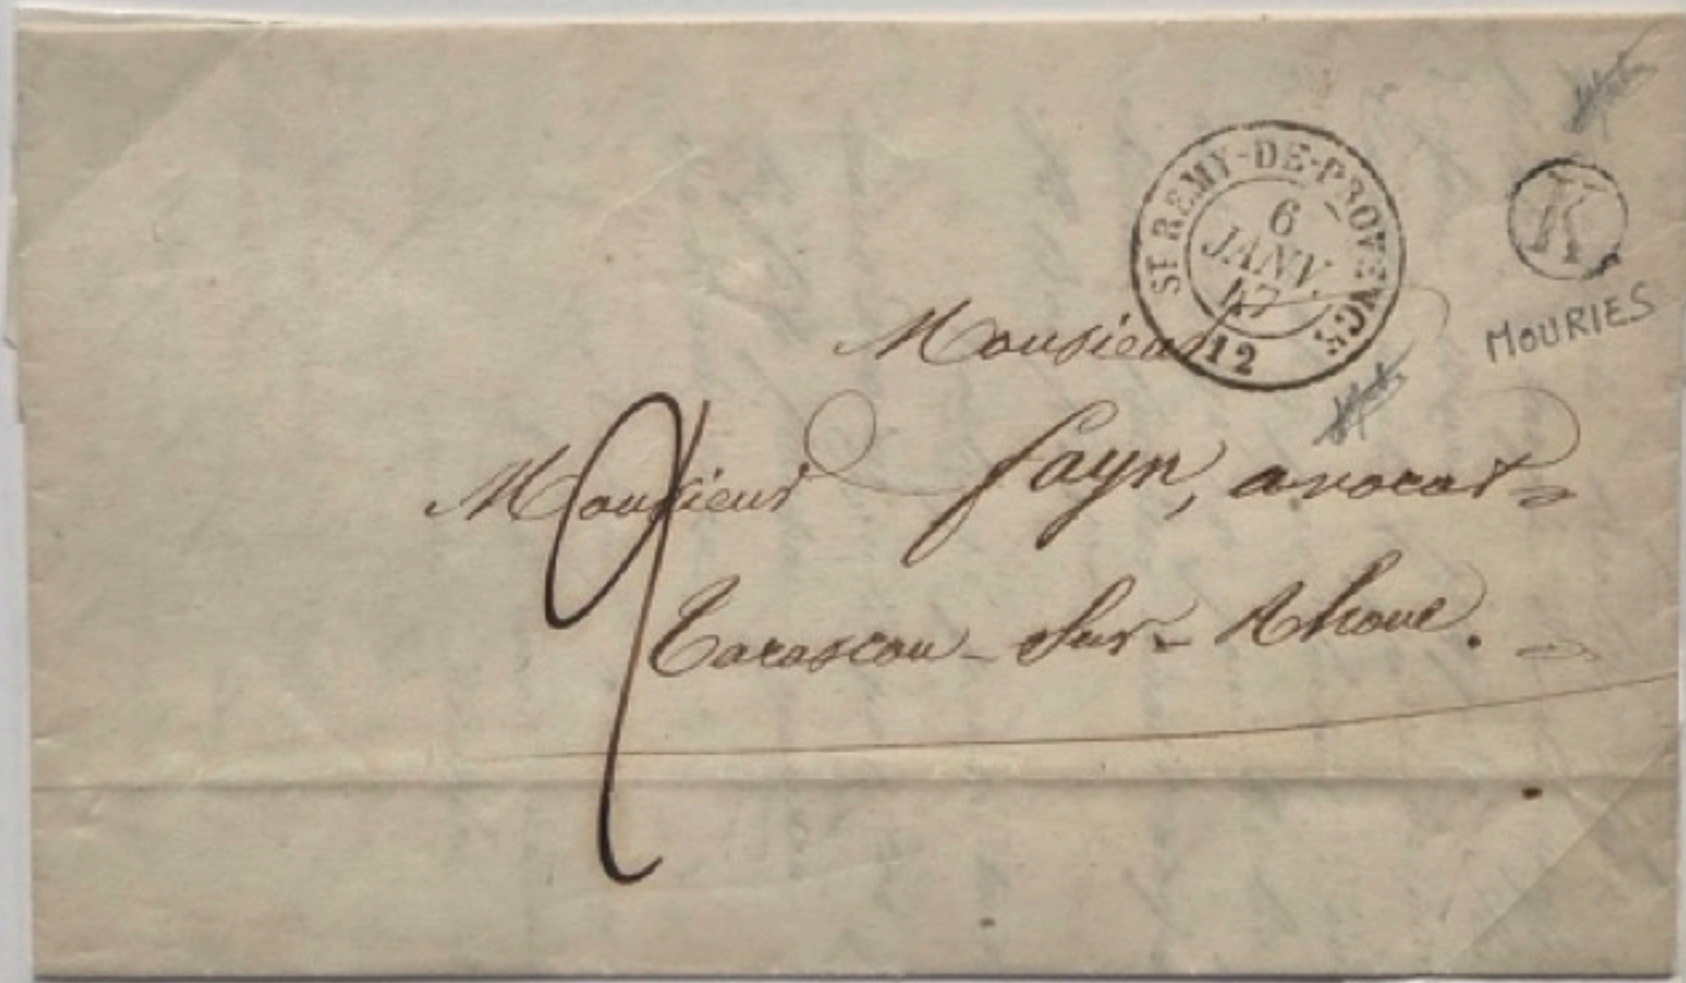 ST REMY-DE-PROVENCE
6
JANV.
47
12
K
MOURIES
Monsieur
Monsieur fayn, avocat
Tarascon-sur-Rhone.
2